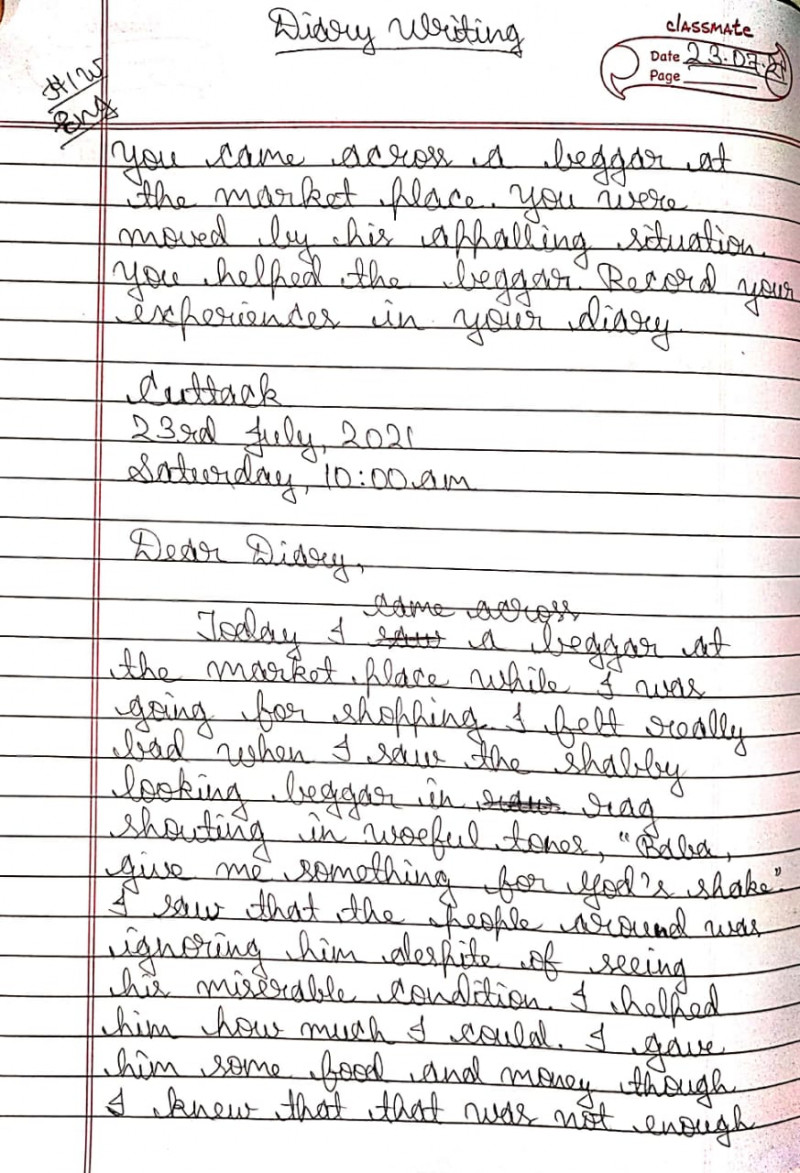 Diary Writing
classmate
Date 23.07.21
Page
H/W
Eng
You came across a beggar at
the market place. You were
moved by his appalling situation.
You helped the beggar. Record your
experiences in your diary.
Cuttack
23rd July, 2021
Saturday, 10:00 am
Dear Diary,
came across
Today I saw a beggar at
the market place while I was
going for shopping. I felt really
bad when I saw the shabby
looking beggar in rag
shouting in woeful tones, "Baba,
give me something for god's shake".
I saw that the people around was
ignoring him despite of seeing
his miserable condition. I helped
him how much I could. I gave
him some food and money though
I knew that that was not enough